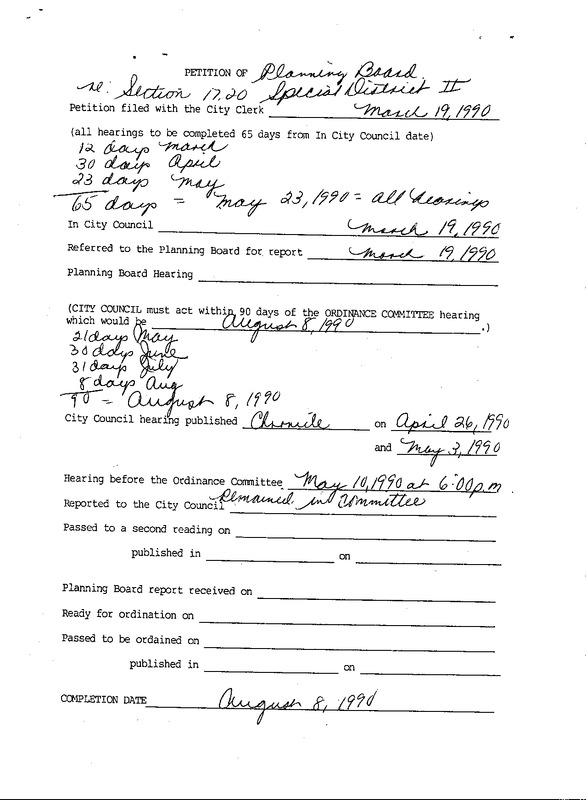 PETITION OF Planning Board,
re: Section 17.20 Special District II
Petition filed with the City Clerk March 19, 1990
(all hearings to be completed 65 days from In City Council date)
12 days March
30 days April
23 days May
65 days = May 23, 1990 = all hearings
In City Council March 19, 1990
Referred to the Planning Board for report March 19, 1990
Planning Board Hearing
(CITY COUNCIL must act within 90 days of the ORDINANCE COMMITTEE hearing
which would be August 8, 1990 .)
21 days May
30 days June
31 days July
8 days Aug
90 = August 8, 1990
City Council hearing published Chronicle on April 26, 1990
and May 3, 1990
Hearing before the Ordinance Committee May 10, 1990 at 6:00 p.m.
Reported to the City Council Remained in Committee
Passed to a second reading on
published in on
Planning Board report received on
Ready for ordination on
Passed to be ordained on
published in on
COMPLETION DATE August 8, 1990